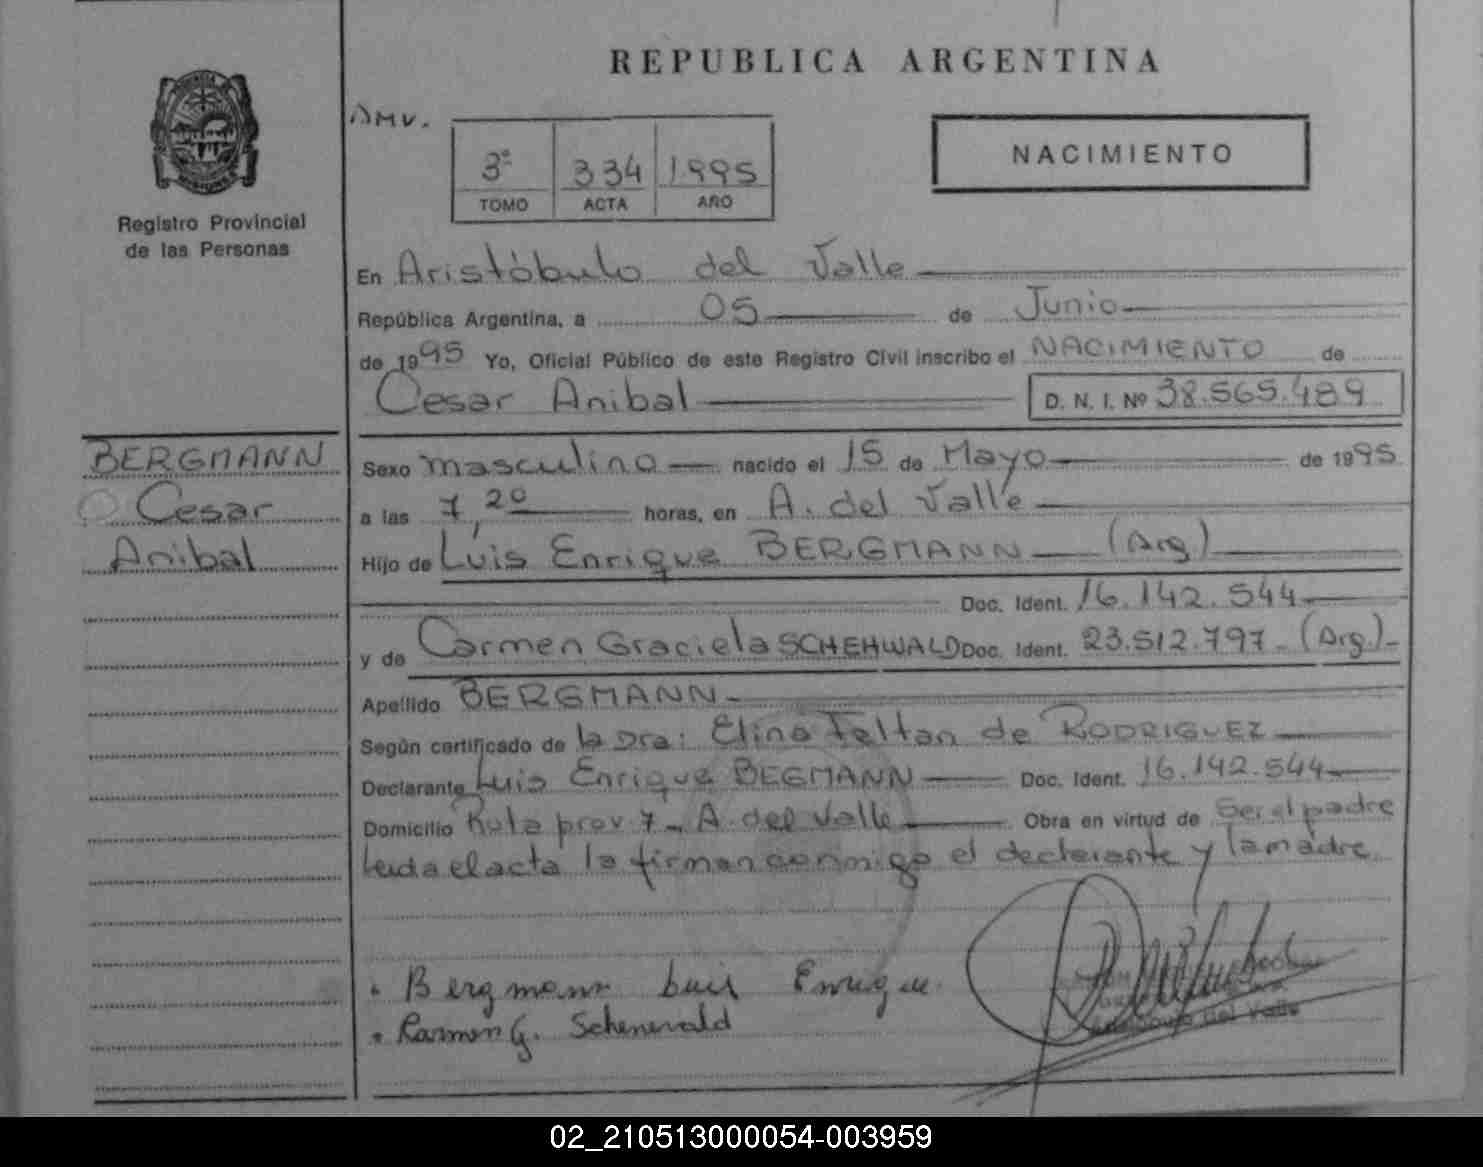 REPUBLICA ARGENTINA
AMV.
3º 334 1995
TOMO ACTA AÑO
NACIMIENTO
Registro Provincial
de las Personas
En Aristóbulo del Valle
República Argentina, a 05 de Junio
de 1995 Yo, Oficial Público de este Registro Civil inscribo el NACIMIENTO de
Cesar Anibal D. N. I. Nº 38.565.489
BERGMANN
Cesar
Anibal
Sexo masculino nacido el 15 de Mayo de 1995
a las 7,20 horas, en A. del Valle
Hijo de Luis Enrique BERGMANN (Arg)
Doc. Ident. 16.142.544
y de Carmen Graciela SCHEHWALD Doc. Ident. 23.512.797 - (Arg.)-
Apellido BERGMANN
Según certificado de la Dra: Elina Feltan de RODRIGUEZ
Declarante Luis Enrique BEGMANN Doc. Ident. 16.142.544
Domicilio Ruta prov. 7 - A. del Valle Obra en virtud de Ser el padre
Leida el acta la firman conmigo el declarante y la madre.
Bergmann Luis Enrique
Karmen G. Schenervald
del Valle
02_210513000054-003959